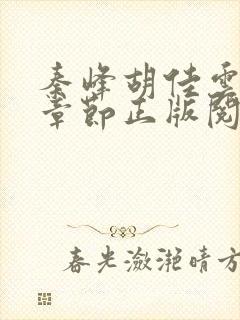 秦峰胡佳雲
章節正版閱
春光瀲灩晴方